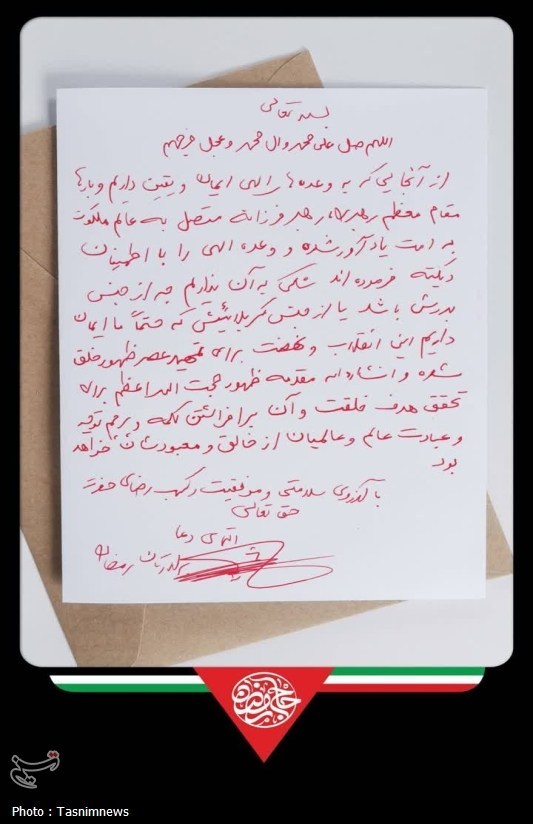 بسمه تعالی
اللهم صل علی محمد وال محمد وعجل فرجهم
از آنجایی که به وعده های الهی ایمان و یقین داریم و بارها
مقام معظم رهبری، رهبر فرزانه متصل به عالم ملکوت
به امت یادآور شده و وعده الهی را با اطمینان
دیکته فرموده اند شکی به آن نداریم چه از جنس
بدرش باشد یا از جنس کربلائیش که حتماً ما ایمان
داریم این انقلاب و نهضت برای تمهید عصر ظهور خلق
شده و انشاءاله مقدمه ظهور حجت اله اعظم برای
تحقق هدف خلقت و آن برافراشتن کلمه و پرچم توحید
و عبادت عالم و عالمیان از خالق و معبودشان خواهد
بود
با آرزوی سلامتی و موفقیت کسب رضای حضرت
حق تعالی
التماس دعا
برادرتان رمضان
حاج رمضان
تسنیم
Photo : Tasnimnews